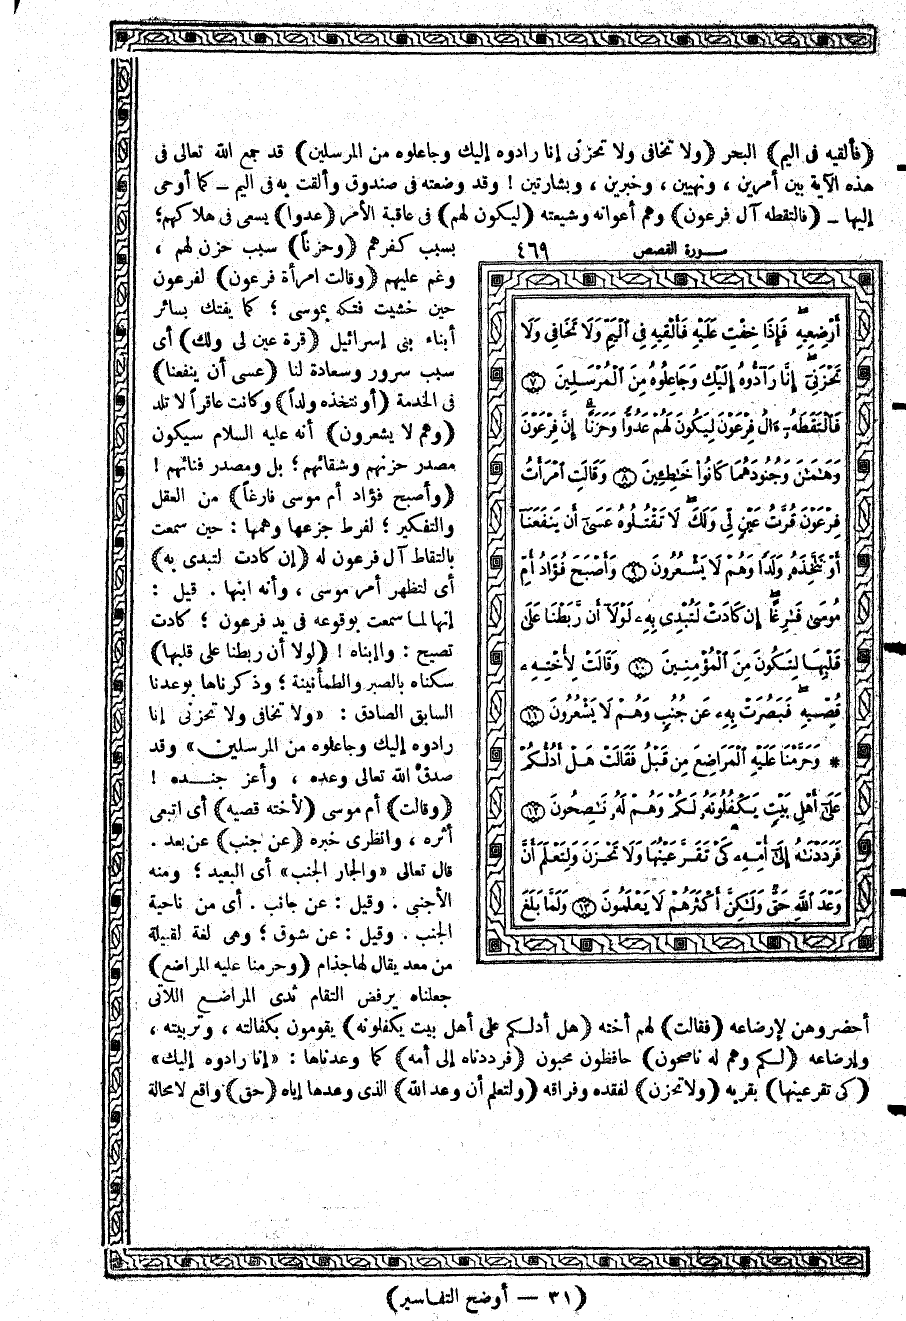 (فألقيه فى اليم) البحر (ولا تخافى ولا تحزنى إنا رادوه إليك وجاعلوه من المرسلين) قد جمع الله تعالى فى
هذه الآية بين أمرين ، ونهيين ، وخبرين ، وبشارتين ! وقد وضعته فى صندوق وألقت به فى اليم ــ كما أوحى
إليها ــ (فالتقطه آل فرعون) وهم أعوانه وشيعته (ليكون لهم) فى عاقبة الأمر (عدوا) يسعى فى هلاكهم؛
بسبب كفرهم (وحزناً) سبب حزن لهم ،
وغم عليهم (وقالت امرأة فرعون) لفرعون
حين خشيت فتكه بموسى ؛ كما يفتك بسائر
أبناء بنى إسرائيل (قرة عين لى ولك) أى
سبب سرور وسعادة لنا (عسى أن ينفعنا)
فى الخدمة (أو نتخذه ولداً) وكانت عاقراً لا تلد
(وهم لا يشعرون) أنه عليه السلام سيكون
مصدر حزنهم وشقائهم ؛ بل ومصدر فنائهم !
(وأصبح فؤاد أم موسى فارغاً) من العقل
والتفكير ؛ لفرط جزعها وهمها : حين سمعت
بالتقاط آل فرعون له (إن كادت لتبدى به)
أى لتظهر أمر موسى ، وأنه ابنها . قيل :
إنها لما سمعت بوقوعه فى يد فرعون ؛ كادت
تصيح : واابناه ! (لولا أن ربطنا على قلبها)
سكناه بالصبر والطمأنينة ؛ وذكرناها بوعدنا
السابق الصادق : «ولا تخافى ولا تحزنى إنا
رادوه إليك وجاعلوه من المرسلين» وقد
صدق الله تعالى وعده ، وأعز جنـــده !
(وقالت) أم موسى (لأخته قصيه) أى اتبعى
أثره ، وانظرى خبره (عن جنب) عن بعد .
قال تعالى «والجار الجنب» أى البعيد ؛ ومنه
الأجنبى . وقيل : عن جانب . أى من ناحية
الجنب . وقيل : عن شوق ؛ وهى لغة لقبيلة
من معد يقال لها جذام (وحرمنا عليه المراضع)
جعلناه يرفض التقام ثدى المراضـع اللاتى
سـورة القصص ٤٦٩
أَرْضِعِيهِ ۖ فَإِذَا خِفْتِ عَلَيْهِ فَأَلْقِيهِ فِى ٱلْيَمِّ وَلَا تَخَافِى وَلَا
تَحْزَنِىٓ ۖ إِنَّا رَآدُّوهُ إِلَيْكِ وَجَاعِلُوهُ مِنَ ٱلْمُرْسَلِينَ ﴿٧﴾
فَٱلْتَقَطَهُۥٓ ءَالُ فِرْعَوْنَ لِيَكُونَ لَهُمْ عَدُوًّا وَحَزَنًا ۗ إِنَّ فِرْعَوْنَ
وَهَـٰمَـٰنَ وَجُنُودَهُمَا كَانُوا۟ خَـٰطِـِٔينَ ﴿٨﴾ وَقَالَتِ ٱمْرَأَتُ
فِرْعَوْنَ قُرَّتُ عَيْنٍ لِّى وَلَكَ ۖ لَا تَقْتُلُوهُ عَسَىٰٓ أَن يَنفَعَنَآ
أَوْ نَتَّخِذَهُۥ وَلَدًا وَهُمْ لَا يَشْعُرُونَ ﴿٩﴾ وَأَصْبَحَ فُؤَادُ أُمِّ
مُوسَىٰ فَـٰرِغًا ۖ إِن كَادَتْ لَتُبْدِى بِهِۦ لَوْلَآ أَن رَّبَطْنَا عَلَىٰ
قَلْبِهَا لِتَكُونَ مِنَ ٱلْمُؤْمِنِينَ ﴿١٠﴾ وَقَالَتْ لِأُخْتِهِۦ
قُصِّيهِ ۖ فَبَصُرَتْ بِهِۦ عَن جُنُبٍ وَهُمْ لَا يَشْعُرُونَ ﴿١١﴾
* وَحَرَّمْنَا عَلَيْهِ ٱلْمَرَاضِعَ مِن قَبْلُ فَقَالَتْ هَلْ أَدُلُّكُمْ
عَلَىٰٓ أَهْلِ بَيْتٍ يَكْفُلُونَهُۥ لَكُمْ وَهُمْ لَهُۥ نَـٰصِحُونَ ﴿١٢﴾
فَرَدَدْنَـٰهُ إِلَىٰٓ أُمِّهِۦ كَىْ تَقَرَّ عَيْنُهَا وَلَا تَحْزَنَ وَلِتَعْلَمَ أَنَّ
وَعْدَ ٱللَّهِ حَقٌّ وَلَـٰكِنَّ أَكْثَرَهُمْ لَا يَعْلَمُونَ ﴿١٣﴾ وَلَمَّا بَلَغَ
أحضروهن لإرضاعه (فقالت) لهم أخته (هل أدلكم على أهل بيت يكفلونه) يقومون بكفالته ، وتربيته ،
وإرضاعه (لكم وهم له ناصحون) حافظون محبون (فرددناه إلى أمه) كما وعدناها : «إنا رادوه إليك»
(كى تقر عينها) بقربه (ولا تحزن) لفقده وفراقه (ولتعلم أن وعد الله) الذى وعدها إياه (حق) واقع لا محالة
(٣١ — أوضح التفـاسير)